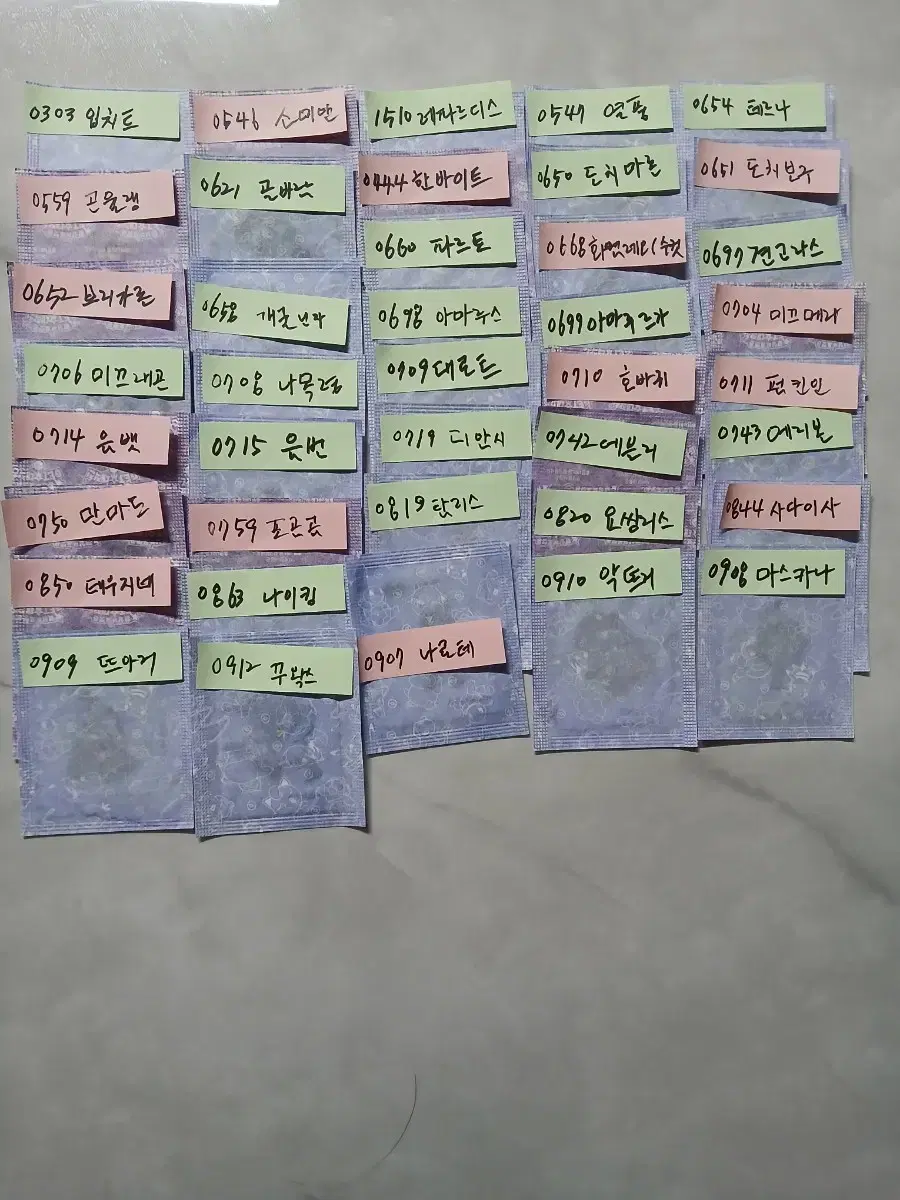 0303 입치트
0546 소미안
1510 레파르디스
0547 엘풍
0654 테르나
0559 곤율랭
0621
0444 한바이트
0650 도치마론
0651 도치보구
0660 파르토
0668 화염레오(수컷
0697 견고라스
0652 브리가론
0658 개굴닌자
0698 아마루스
0699 아마루르가
0704 미끄메라
0706 미끄래곤
0708 나목령
0709 대로트
0710 호바귀
0711 펌킨인
0714 음뱃
0715 음번
0719 디안시
0742 에블리
0743 에리본
0750 만마드
0759 포곰곰
0819 탐리스
0820
0844 사다이사
0850 태우지네
0863 나이킹
0910 악뜨거
0908 마스카나
0909 뜨아거
0912 꾸왁스
0907 나로테